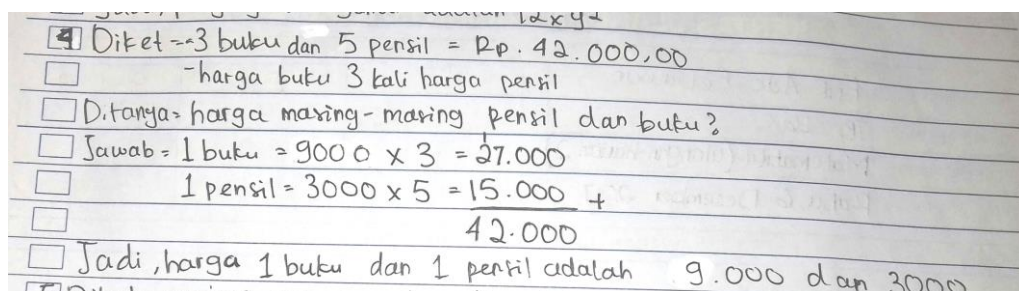 4 Diket - 3 buku dan 5 pensil = Rp. 42.000,00
- harga buku 3 kali harga pensil
Ditanya = harga masing-masing pensil dan buku?
Jawab = 1 buku = 9000 x 3 = 27.000
1 pensil = 3000 x 5 = 15.000 +
42.000
Jadi, harga 1 buku dan 1 pensil adalah 9.000 dan 3000